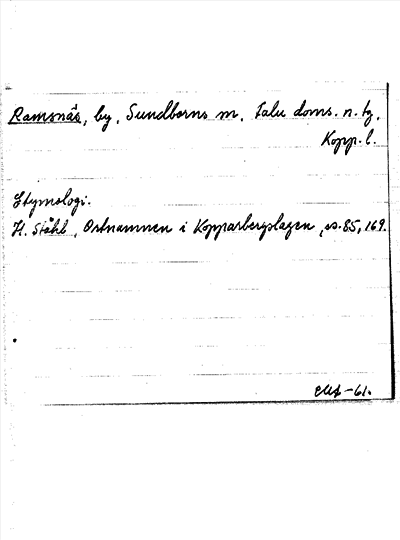 Ramsnäs, by, Sundborns sn, Falu doms. n. tg,
Kopp. l.
Etymologi.
H. Ståhl, Ortnamnen i Kopparbergslagen, ss. 85, 169.
-61.